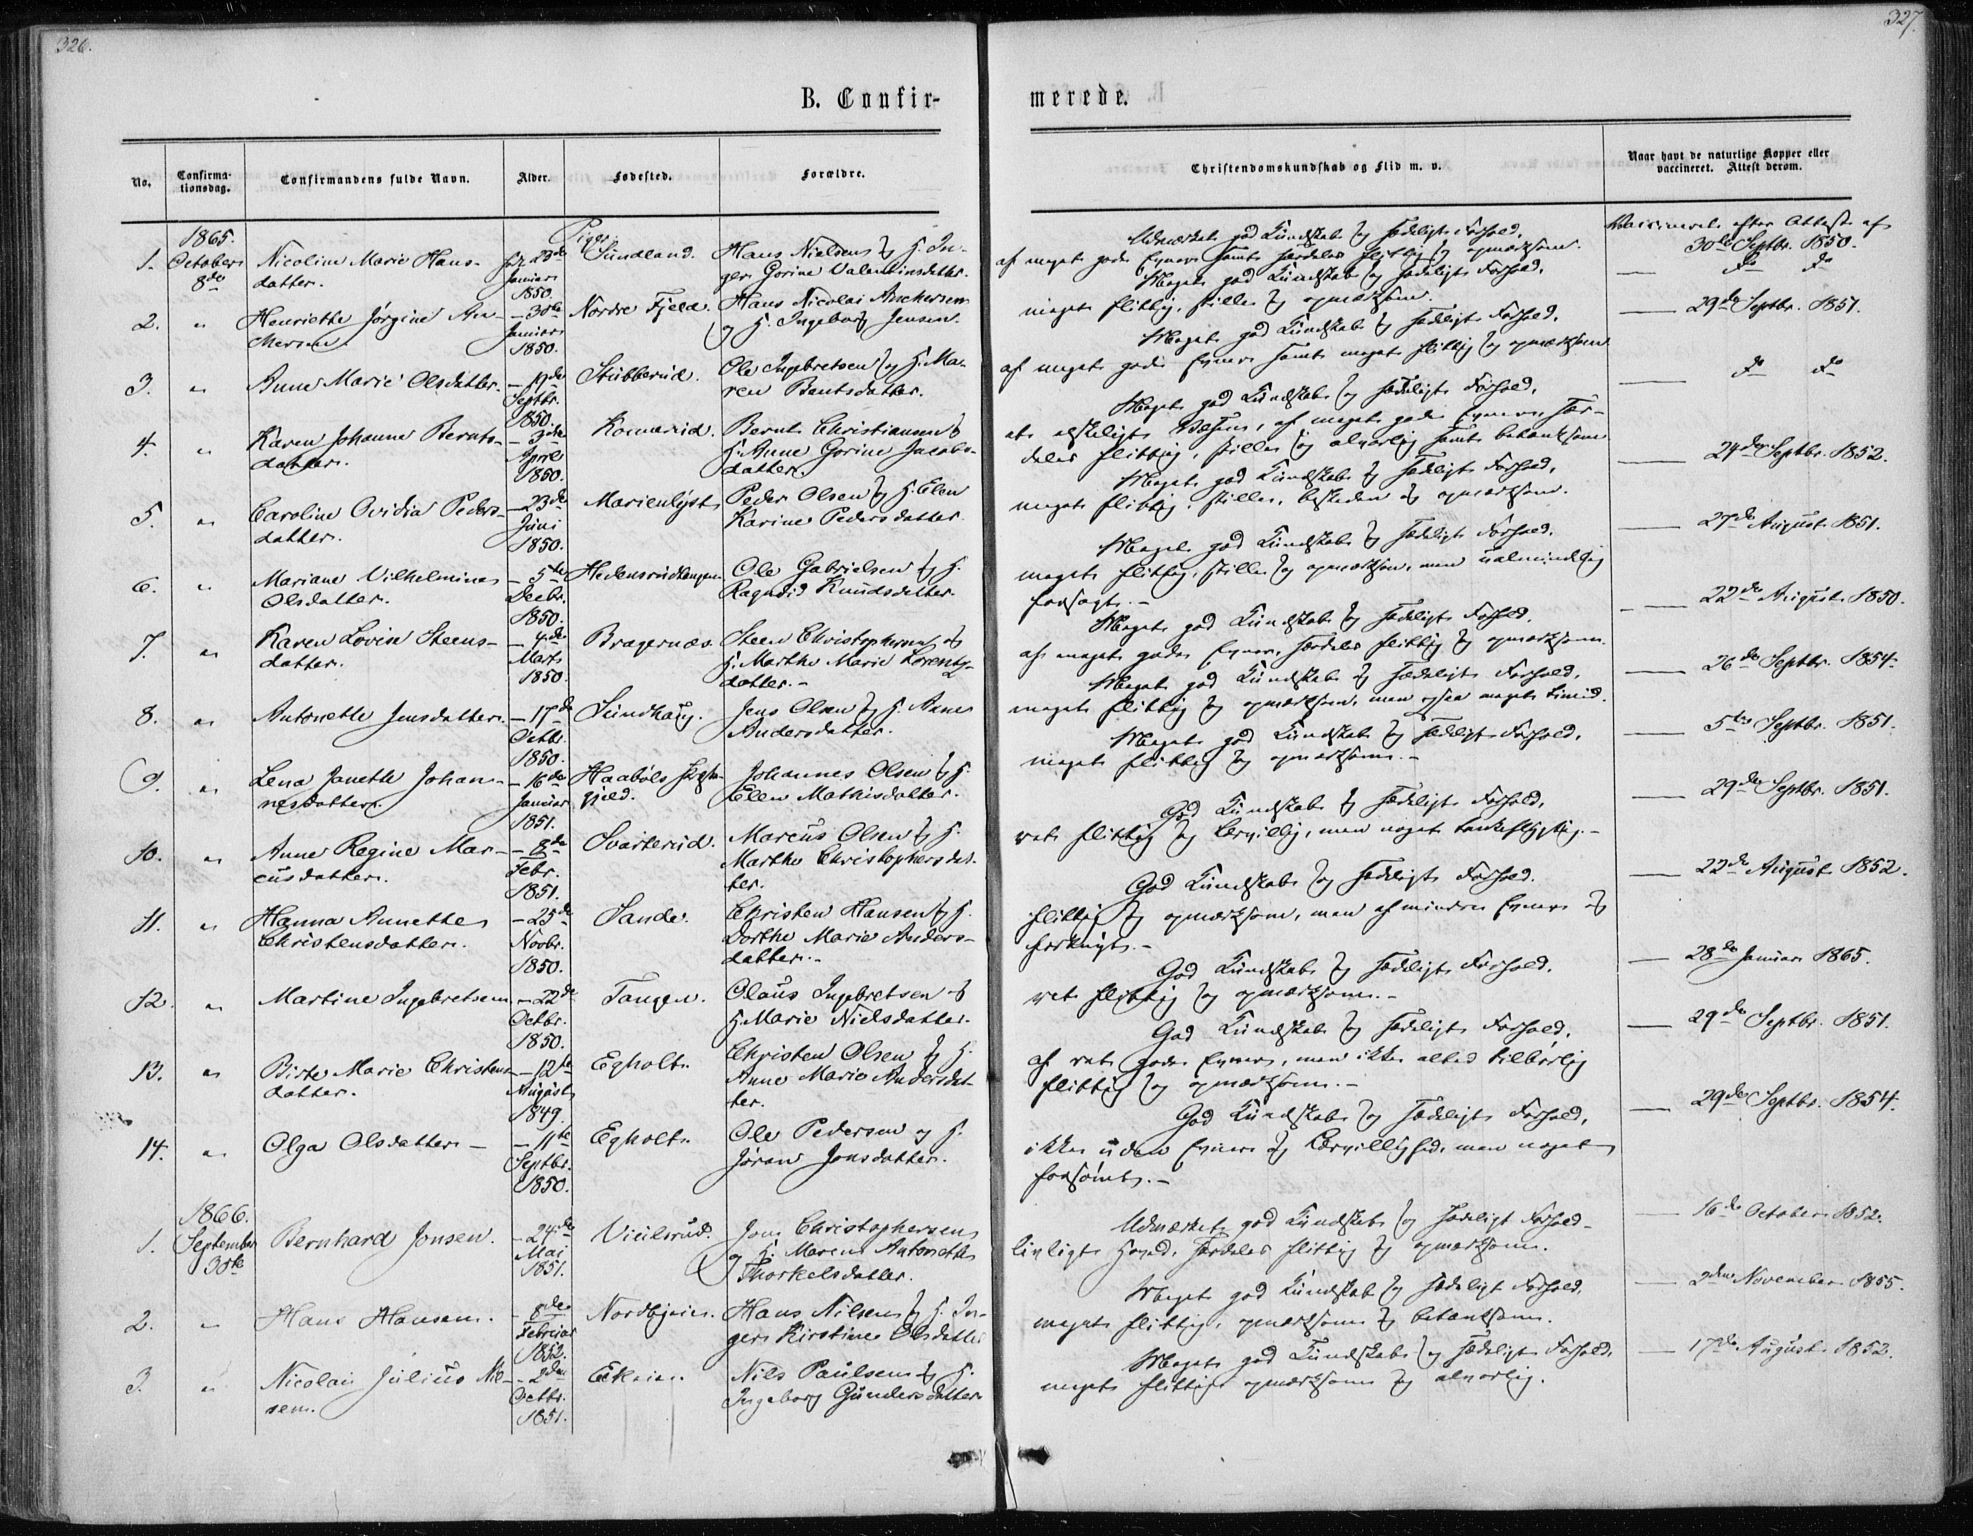 326.
B. Confir-
No.
Confirma-
tionsdag.
Confirmandens fulde Navn.
Alder.
Fødested.
Forældre.
1865.
Piger
1.
October
8de
Nicoline Marie Hans-
datter.
født 23de
Januar
1850.
Sundland.
Hans Nielsen og H. In-
ger Gorine Valentinsdatter.
2.
"
Henriette Jørgine
- 30te
Januar
1850.
Nordre Fjeld.
Hans Nicolai Anchersen
og H. Ingeborg Jensen.
3.
"
Anne Marie Olsdatter.
Septbr.
1850.
Stubberud.
Ole Ingebretsen og H. Ma-
ren Bentsdatter.
4.
"
Karen Johanne Bernts-
datter.
- 3die
April
1850.
Bernt Christiansen og
H. Anne Gorine Jacobs-
datter.
5.
"
Caroline Ovidia Peders-
datter.
- 23de
Juni
1850.
Marienlyst
Peder Olsen og H. Elen
Karine Pedersdatter.
6.
"
Mariane Vilhelmine
Olsdatter.
- 5te
Decbr.
1850.
Ole Gabrielsen og H.
Ragndid Knudsdatter.
7.
"
Karen Lovise Steens-
datter.
- 4de
Marts
1850.
Bragernæs.
Steen Christophersen og
H. Marthe Marie Lorents-
datter. -
8.
"
Antonette Jensdatter.
- 17de
Octbr.
1850.
Sundhaug.
Jens Olsen og H. Anne
Andersdatter.
9.
"
Lena Janette Johan-
nesdatter.
- 16de
Januar
1851.
Haabøls
gjeld.
Johannes Olsen og H.
Elen Mathisdatter.
10.
"
Anne Regine Mar-
cusdatter.
- 8de
Febr.
1851.
Svarterud.
Marcus Olsen og H.
Marthe Christophersdat-
ter.
11.
"
Hanna Annette
Christensdatter.
- 25de
Novbr.
1850.
Sande.
Christen Hansen og H.
Dorthe Marie Anders-
datter. -
12.
"
Martine Ingebretsen
- 22de
Octbr.
1850.
Tangen.
Olaus Ingebretsen og
H. Marie Nielsdatter.
13.
"
Birte Marie Christens-
datter.
- 12te
August
1849.
Egholt.
Christen Olsen og H.
Anne Marie Andersdat-
ter.
14.
"
Olga Olsdatter -
- 11te
Septbr.
1850.
Egholt.
Ole Pedersen og H.
Jøran Jonsdatter.
1866.
1.
September
30te
Bernhard Jonsen.
- 24de
Mai
1851.
Jon Christophersen
og H. Maren Antonette
Thorkelsdatter.
2.
"
Hans Hansen.
- 8de
Februar
1852.
Hans Nilsen og H. In-
ger Kirstine Olsdatter
3.
"
Nicolai Julius Nil-
sen.
- 2den
Octbr.
1851.
Nils Paulsen og H.
Ingeborg Gundersdatter
327.
merede.
Christendomskundskab og Flid m. v.
Naar havt de naturlige Kopper eller
vaccineret. Attest derom.
Udmærket god Kundskab og sædeligt Forhold,
af meget gode Evner samt særdeles flittig og opmærksom.
Vaccineret efter Attest af
30te Septbr. 1850.
Meget god Kundskab og sædeligt Forhold,
meget flittig, stille og opmærksom.
do do
Meget god Kundskab og sædeligt Forhold,
af meget gode Evner samt meget flittig og opmærksom
29de Septbr. 1851.
Meget god Kundskab og sædeligt Forhold,
et elskeligt Væsen, af meget gode Evner, sær-
deles flittig, stille og alvorlig samt betænksom
do do
Meget god Kundskab og sædeligt Forhold,
meget flittig, stille, beskeden og opmærksom.
24de Septbr. 1852.
Meget god Kundskab og sædeligt Forhold,
meget flittig, stille og opmærksom, men ualmindelig
forsagt. -
27de August 1851.
Meget god Kundskab og sædeligt Forhold,
af meget gode Evner, særdeles flittig og opmærksom.
22de August 1850.
Meget god Kundskab og sædeligt Forhold,
meget flittig og opmærksom, men ogsaa meget timid.
26de Septbr. 1854.
Meget god Kundskab og sædeligt Forhold,
meget flittig og opmærksom. -
5te Septbr. 1851.
God Kundskab og sædeligt Forhold,
ret flittig og lærvillig, men noget tankeflygtig. -
29de Septbr. 1851.
God Kundskab og sædeligt Forhold.
flittig og opmærksom, men af mindre Evner og
forknyt. -
22de August 1852.
God Kundskab og sædeligt Forhold,
ret flittig og opmærksom. -
28de Januar 1865.
God Kundskab og sædeligt Forhold,
af ret gode Evner, men ikke altid tilbørlig
flittig og opmærksom. -
29de Septbr. 1851.
God Kundskab og sædeligt Forhold,
ikke uden Evner og Lærvillighed, men noget
forsømt. -
29de Septbr. 1854.
Udmærket god Kundskab og sædeligt Forhold
særdeles flittig og opmærksom.
16de October 1852.
Meget god Kundskab og sædeligt Forhold,
meget flittig, opmærksom og betænksom.
2den November 1855.
Meget god Kundskab og sædeligt Forhold,
meget flittig, opmærksom og alvorlig.
17de August 1852.